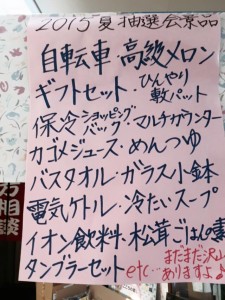 2015夏抽選会景品
自転車・高級メロン
ギフトセット・ひんやり敷パット
保冷ショッピングバック・マルチカウンター
カゴメジュース・めんつゆ
バスタオル・ガラス小鉢
電気ケトル・冷たいスープ
イオン飲料・松茸ごはんの素
タンブラーセット etc…
まだまだ沢山
ありますよ♪
相談